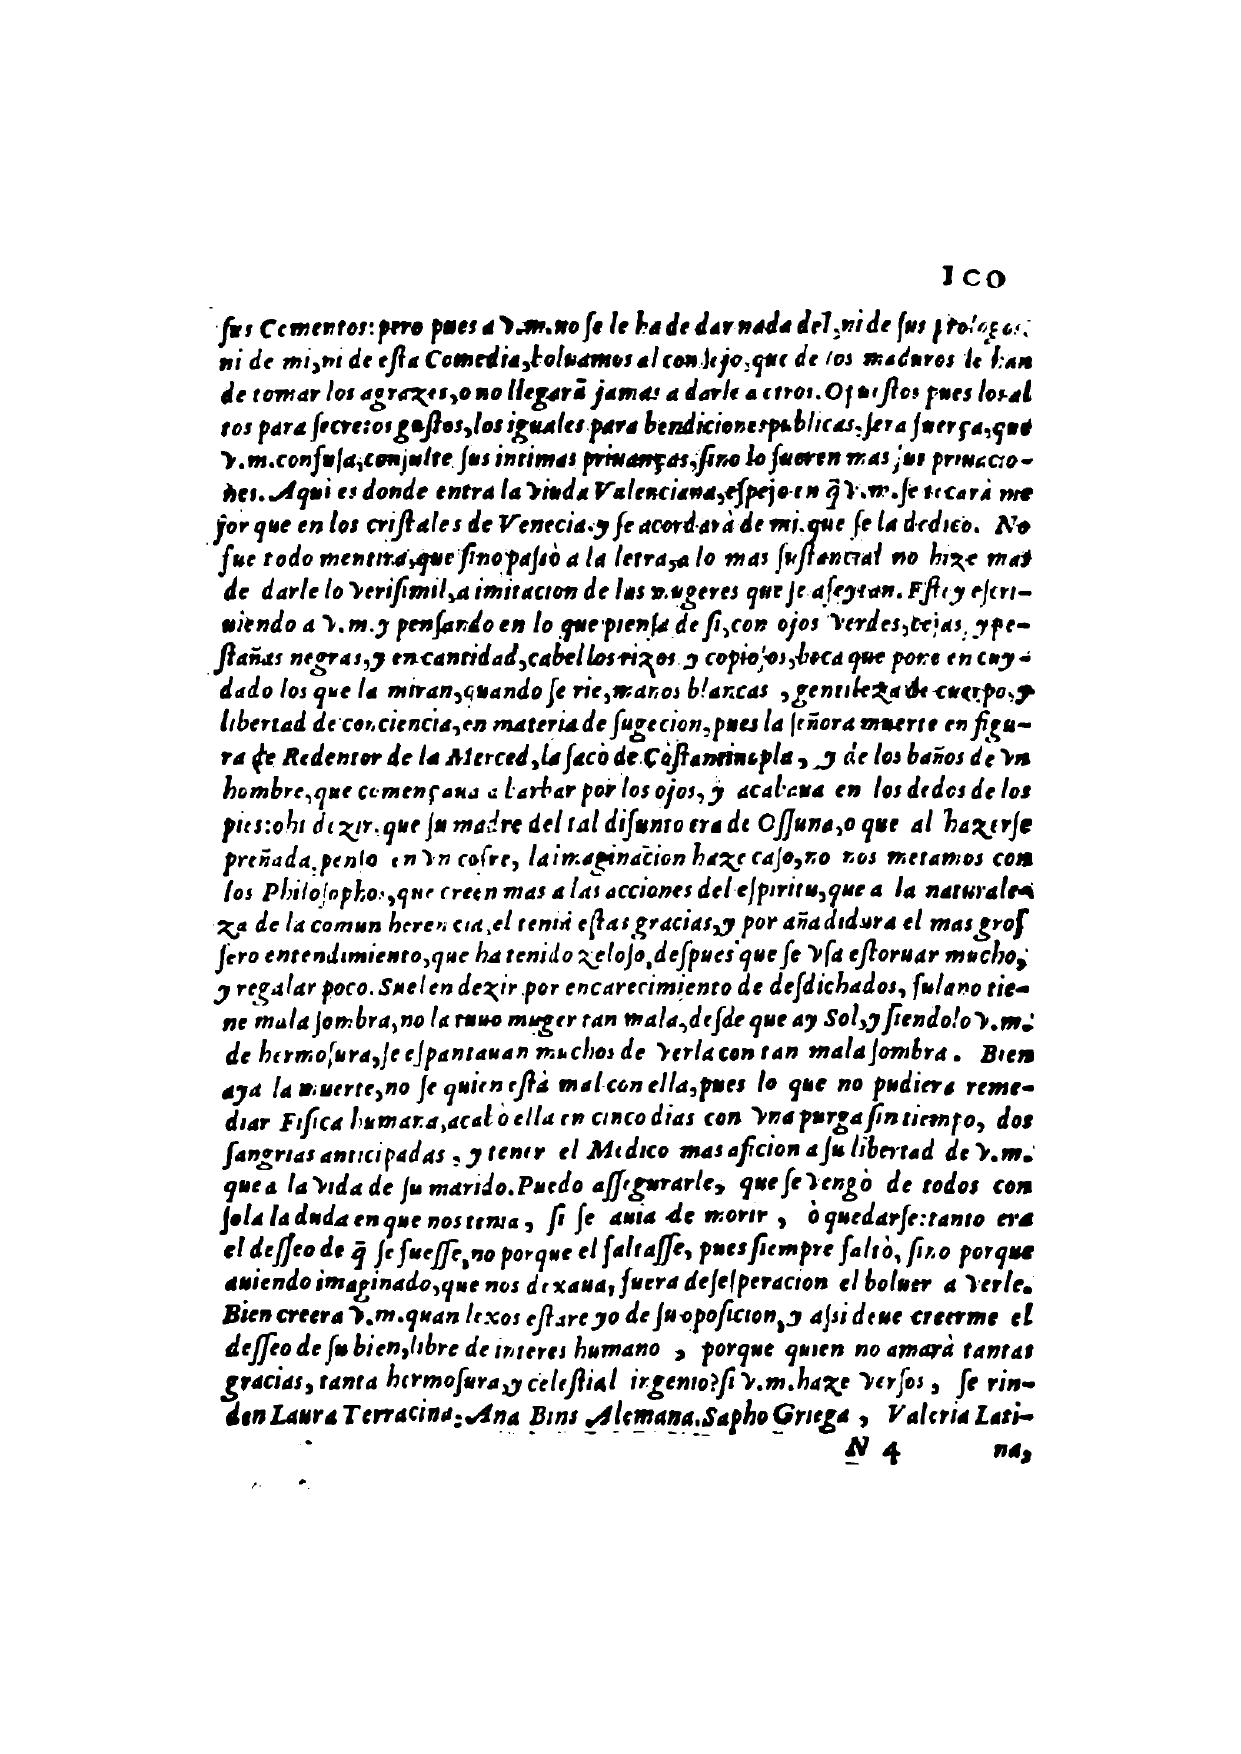 100
ſus Comentos: pero pues a v.m. no ſe le ha de dar nada del, ni de ſus prologos,
ni de mi, ni de eſta Comedia, boluamos al conſejo, que de los maduros ſe han
de tomar los agrazes, o no llegarā jamas a darle a otros. Opueſtos pues los al
tos para ſecretos guſtos, los iguales para bendiciones publicas, ſera fuerça, que
v.m. confuſa, conſulte ſus intimas priuanças, ſino lo fueren mas ſus priuacio-
nes. Aqui es donde entra la viuda Valenciana, eſpejo en q̄ v.m. ſe tocarà me
jor que en los criſtales de Venecia. y ſe acordarà de mi. que ſe la dedico. No
fue todo mentira, que ſino paſsò a la letra, a lo mas ſuſtancial no hize mas
de darle lo veriſimil, a imitacion de las mugeres que ſe afeytan. Eſtoy eſcri-
uiendo a v.m. y penſando en lo que pienſa de ſi, con ojos verdes, cejas, y pe-
ſtañas negras, y en cantidad, cabellos rizos y copioſos, boca que pone en cuy-
dado los que la miran, quando ſe rie, manos blancas, gentileza de cuerpo, y
libertad de conciencia, en materia de ſugecion, pues la ſeñora muerte en figu-
ra de Redentor de la Merced, la ſacò de Cōſtantinopla, y de los baños de vn
hombre, que començaua a barbar por los ojos, y acabaua en los dedos de los
pies: ohi dezir. que ſu madre del tal difunto era de Oſſuna, o que al hazerſe
preñada, penſo en vn cofre, la imaginacion haze caſo, no nos metamos con
los Philoſophos, que creen mas a las acciones del eſpiritu, que a la naturale-
za de la comun herencia, el tenia eſtas gracias, y por añadidura el mas groſ
ſero entendimiento, que ha tenido zeloſo, deſpues que ſe vſa eſtoruar mucho,
y regalar poco. Suelen dezir por encarecimiento de deſdichados, fulano tie-
ne mala ſombra, no la tuuo muger tan mala, deſde que ay Sol, y ſiendolo v.m.
de hermoſura, ſe eſpantauan muchos de verla con tan mala ſombra. Bien
aya la muerte, no ſe quien eſtà mal con ella, pues lo que no pudiera reme-
diar Fiſica humana, acabò ella en cinco dias con vna purga ſin tiempo, dos
ſangrias anticipadas, y tener el Medico mas aficion a ſu libertad de v.m.
que a la vida de ſu marido. Puedo aſſegurarle, que ſe vengò de todos con
ſola la duda en que nos tenia, ſi ſe auia de morir, ò quedarſe: tanto era
el deſſeo de q̄ ſe fueſſe, no porque el faltaſſe, pues ſiempre faltò, ſino porque
auiendo imaginado, que nos dexaua, fuera deſeſperacion el boluer a verle.
Bien creera v.m. quan lexos eſtare yo de ſu opoſicion, y aſsi deue creerme el
deſſeo de ſu bien, libre de interes humano, porque quien no amarà tantas
gracias, tanta hermoſura, y celeſtial ingenio? ſi v.m. haze verſos, ſe rin-
den Laura Terracina: Ana Bins Alemana. Sapho Griega, Valeria Lati-
N 4 na,